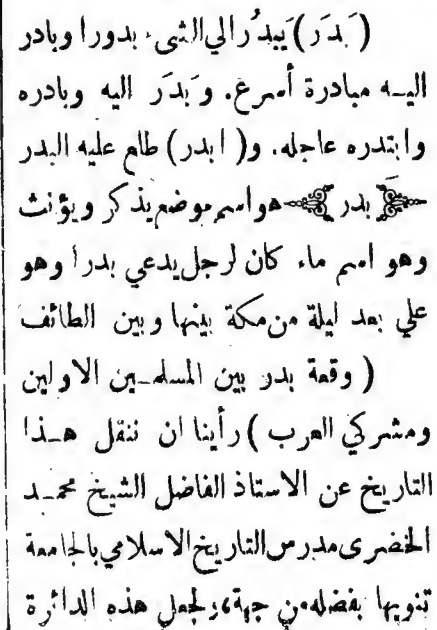 ( بَدَر ) يَبدُر الي الشيء بدورا وبادر
اليـه مبادرة أسرع. وبَدَر اليه وبادره
وابتدره عاجله. و( ابدر ) طلع عليه البدر
بدر هو اسم موضع يذكر ويؤنث
وهو اسم ماء كان لرجل يدعي بدرا وهو
علي بعد ليلة من مكة بينها وبين الطائف
( وقعة بدر بين المسلمـين الاولين
ومشركي العرب ) رأينا ان ننقل هـذا
التاريخ عن الاستاذ الفاضل الشيخ محمـد
الخضري مدرس التاريخ الاسلامي بالجامعة
تنويها بفضله من جهة، ولجعل هذه الدائرة